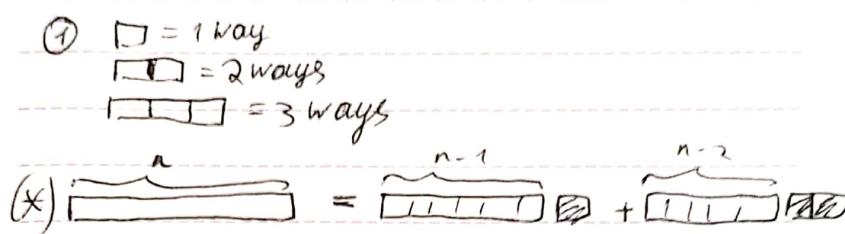 ① = 1 way
= 2 ways
= 3 ways
n n-1 n-2
(*) = +